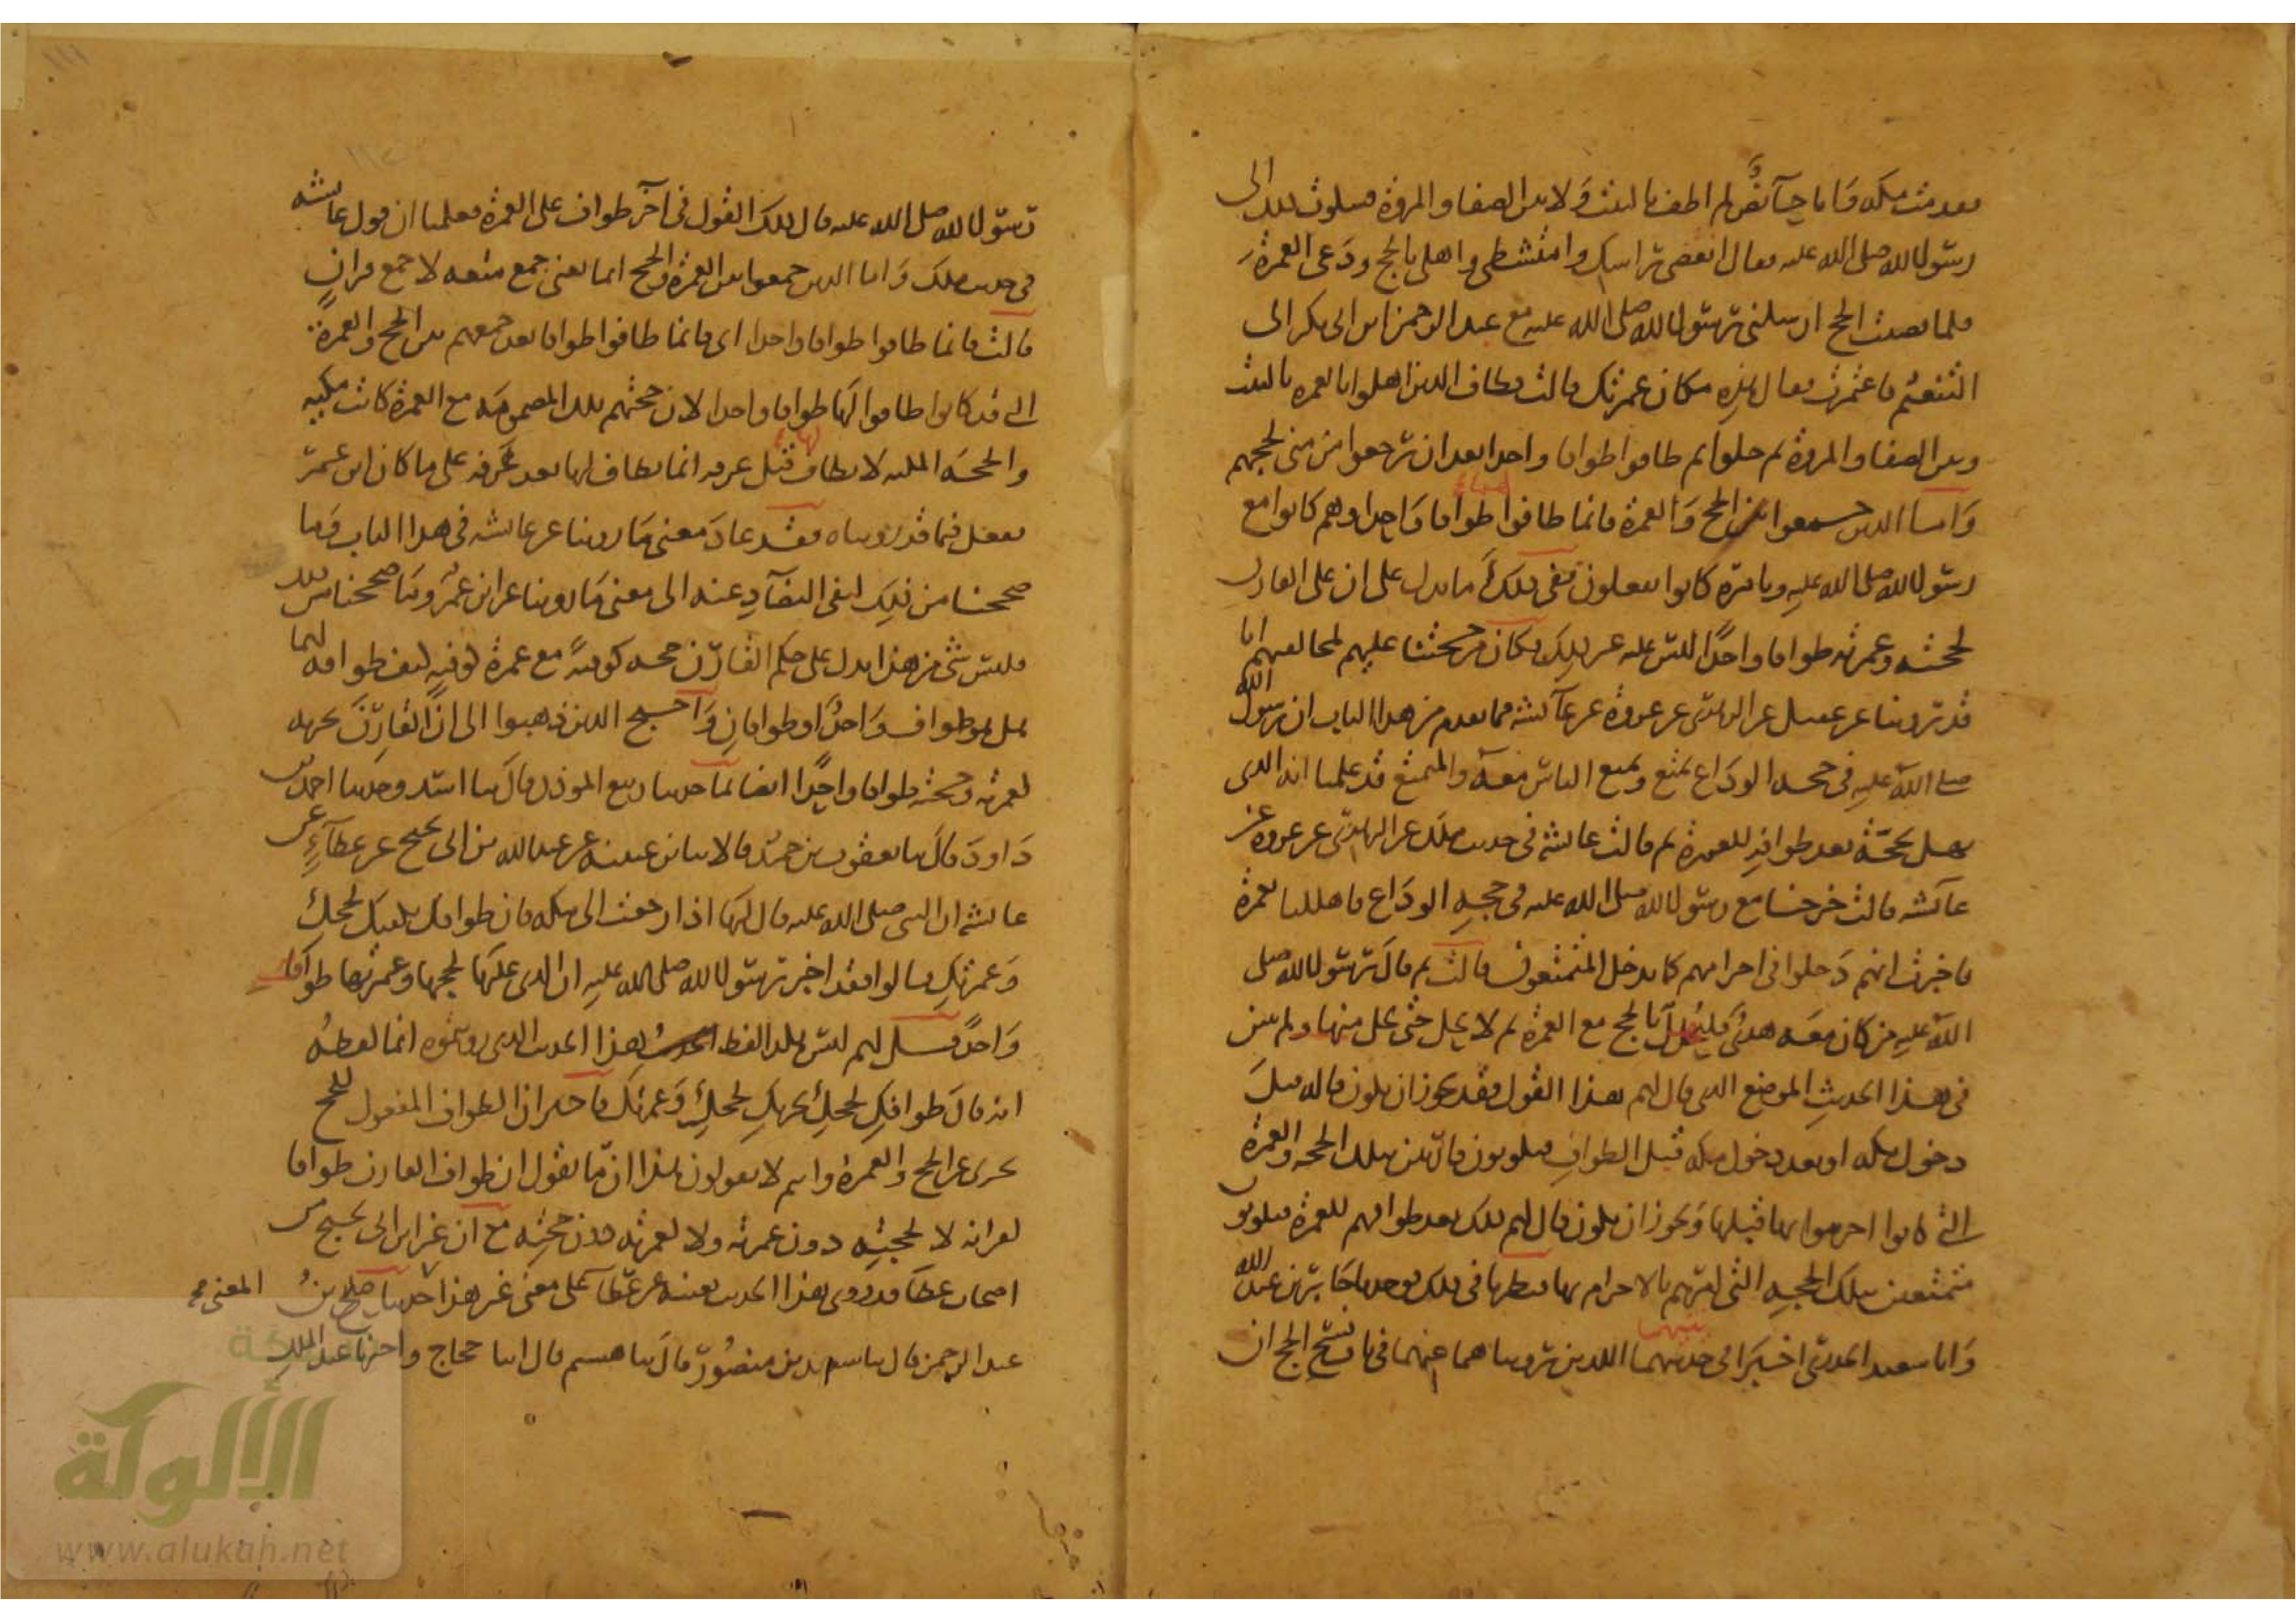 فقدمت مكه وانا حائض لم اطف بالبيت ولا بين الصفا والمروة فشكوت ذلك الى
رسول الله صلى الله عليه فقال انقضى راسك وامتشطى واهلى بالحج ودعى العمرة
فلما قضيت الحج ارسلنى رسول الله صلى الله عليه مع عبد الرحمن بن ابى بكر الى
التنعيم فاعتمرت فقال هذه مكان عمرتك قالت فطاف الذين اهلوا بالعمره بالبيت
وبين الصفا والمروة ثم حلوا ثم طافوا طوافا واحدا بعد ان رجعوا من منى لحجهم
واما الذين جمعوا بين الحج والعمرة فانما طافوا طوافا واحدا وهم كانوا مع
رسول الله صلى الله عليه وبامره كانوا يفعلون ففى ذلك ما يدل على ان على القارن
لحجته وعمرته طوافا واحدا ليس عليه غير ذلك فكان من حجتنا عليهم لمخالفهم انا
قد روينا عن عقيل عن الزهرى عن عروة عن عائشه فيما تقدم من هذا الباب ان رسول الله
صلى الله عليه فى حجه الوداع تمتع وتمتع الناس معه والمتمتع قد علمنا انه الذى
يهل بحجة بعد طوافه للعمرة ثم قالت عائشة فى حديث ملك عن الزهرى عن عروه عن
عائشه قالت خرجنا مع رسول الله صلى الله عليه فى حجه الوداع فاهللنا بعمرة
فاخبرت انهم دخلوا فى احرامهم كما يدخل المتمتعون قالت ثم قال رسول الله صلى
الله عليه من كان معه هدى فليهل بالحج مع العمرة ثم لا يحل حتى يحل منهما ولم يبين
فى هذا الحديث الموضع الذى قال لهم هذا القول فقد يجوز ان يكون قاله قبل
دخول مكه او بعد دخول مكه قبل الطواف فيكونون قارنين بتلك الحجه والعمرة
التى كانوا احرموا بها قبلها ويجوز ان يكون قال لهم ذلك بعد طوافهم للعمرة فيكونون
متمتعين بتلك الحجه التى امرهم بالاحرام بها فنظرنا فى ذلك فوجدنا جابر بن عبد الله
وابا سعيد الخدرى اخبرا فى حديثهما اللذين رويناهما عنهما فى باب فسخ الحج ان
رسول الله صلى الله عليه قال ذلك القول فى آخر طواف على العمرة فعلمنا ان قول عائشه
فى حديث ملك واما الذين جمعوا بين العمرة والحج انما تعنى جمع متعه لا جمع قران
قالت فانما طافوا طوافا واحدا اى فانما طافوا طوافا بعد جمعهم بين الحج والعمرة
التى قد كانوا طافوا لها طوافا واحدا لان حجتهم تلك المضمومه مع العمرة كانت مكيه
والحجه المكيه لا يطاف لها قبل عرفه انما يطاف لها بعد عرفه على ما كان ابن عمر
يفعل فيما قد رويناه فقد عاد معنى ما روينا عن عائشه فى هذا الباب وما
صححنا من ذلك لنفى التضاد عنه الى معنى ما روينا عن ابن عمر وما صححنا من ذلك
فليس شى من هذا يدل على حكم القارن حجه كوفيه مع عمرة كوفيه كيف طوافه لهما
هل هو طواف واحد او طوافان واحتج الذين ذهبوا الى ان القارن يجزيه
لعمرته وحجته طوافا واحدا ايضا بما حدثنا ربيع الموذن قال ثنا اسد وحدثنا احمد بن
داود قال ثنا يعقوب بن حميد قالا ثنا ابن عيينه عن عبد الله بن ابى نجيح عن عطاء عن
عائشه ان النبى صلى الله عليه قال لها اذا رجعت الى مكه فان طوافك يكفيك لحجك
وعمرتك قالوا فقد اخبر رسول الله صلى الله عليه ان الذى عليها لحجها وعمرتها طوافا
واحدا قيل لهم ليس هكذا لفظ هذا الحديث الذى رويتموه انما لفظه
انه قال طوافك لحجك يجزيك لحجك وعمرتك فاخبر ان الطواف المفعول للحج
يجزى عن الحج والعمرة وانتم لا تقولون هذا انما تقولون ان طواف القارن طوافا
لقرانه لا لحجته دون عمرته ولا لعمرته دون حجته مع ان غير ابن ابى نجيح من
اصحاب عطا قد روى هذا الحديث بعينه عن عطا على معنى غير هذا المعنى حدثنا صلح بن
عبد الرحمن قال ثنا سعيد بن منصور قال ثنا هشيم قال انا حجاج واخبرنا عبد الملك
الألوكة
www.alukah.net